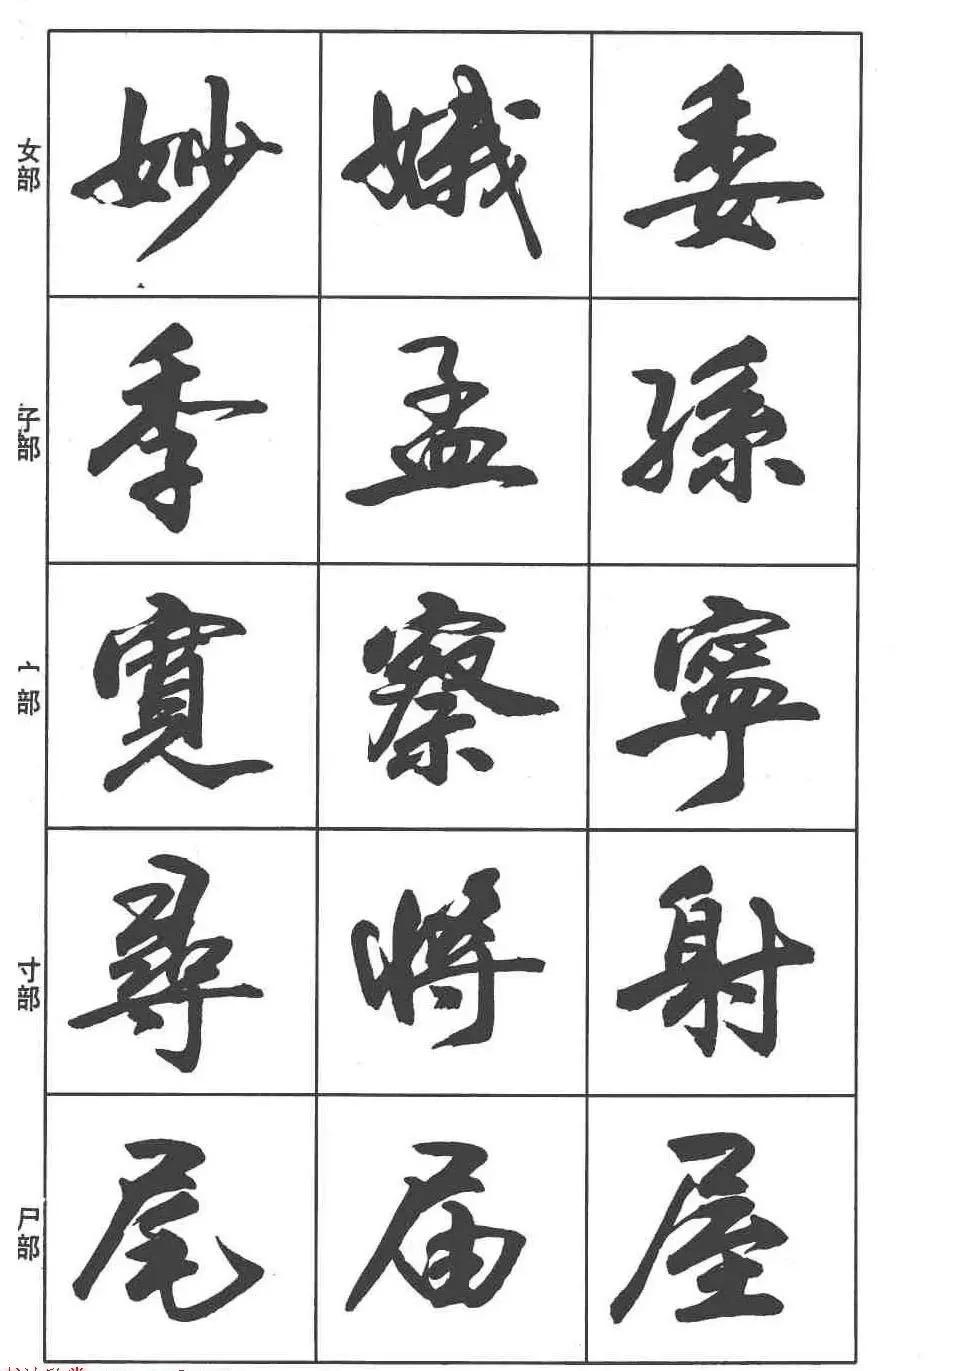 女部 妙 娥 委
子部 季 孟 孫
宀部 寬 察 寧
寸部 尋 將 射
尸部 尾 届 屋